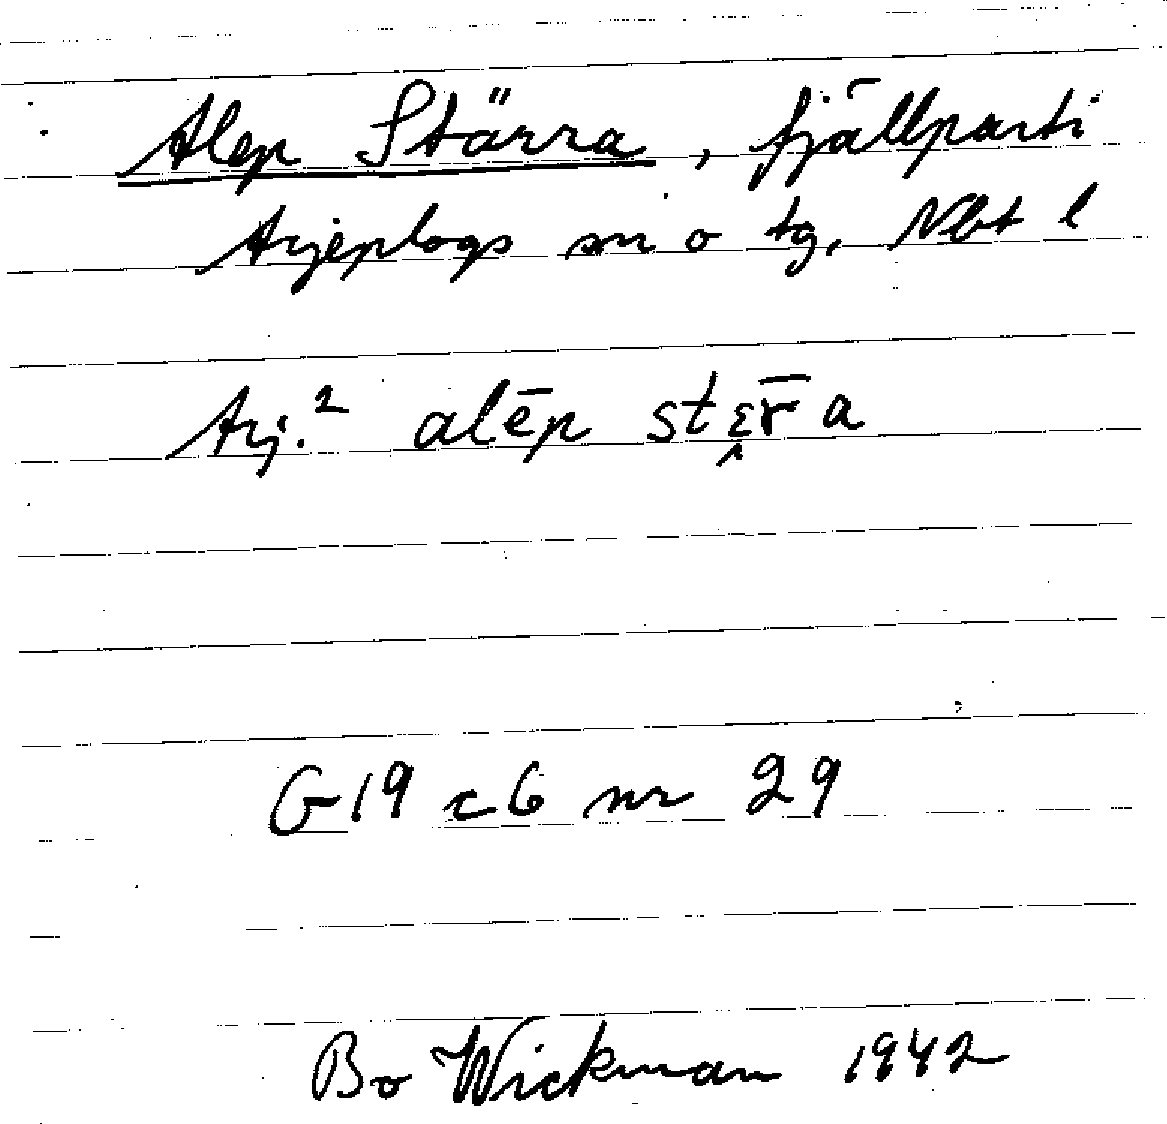 Alep Stärra, fjällparti
Arjeplogs sn o tg, Nbt l
Arj.² alēp stɛ̭r̄a
G19 c6 nr 29
Bo Wickman 1942